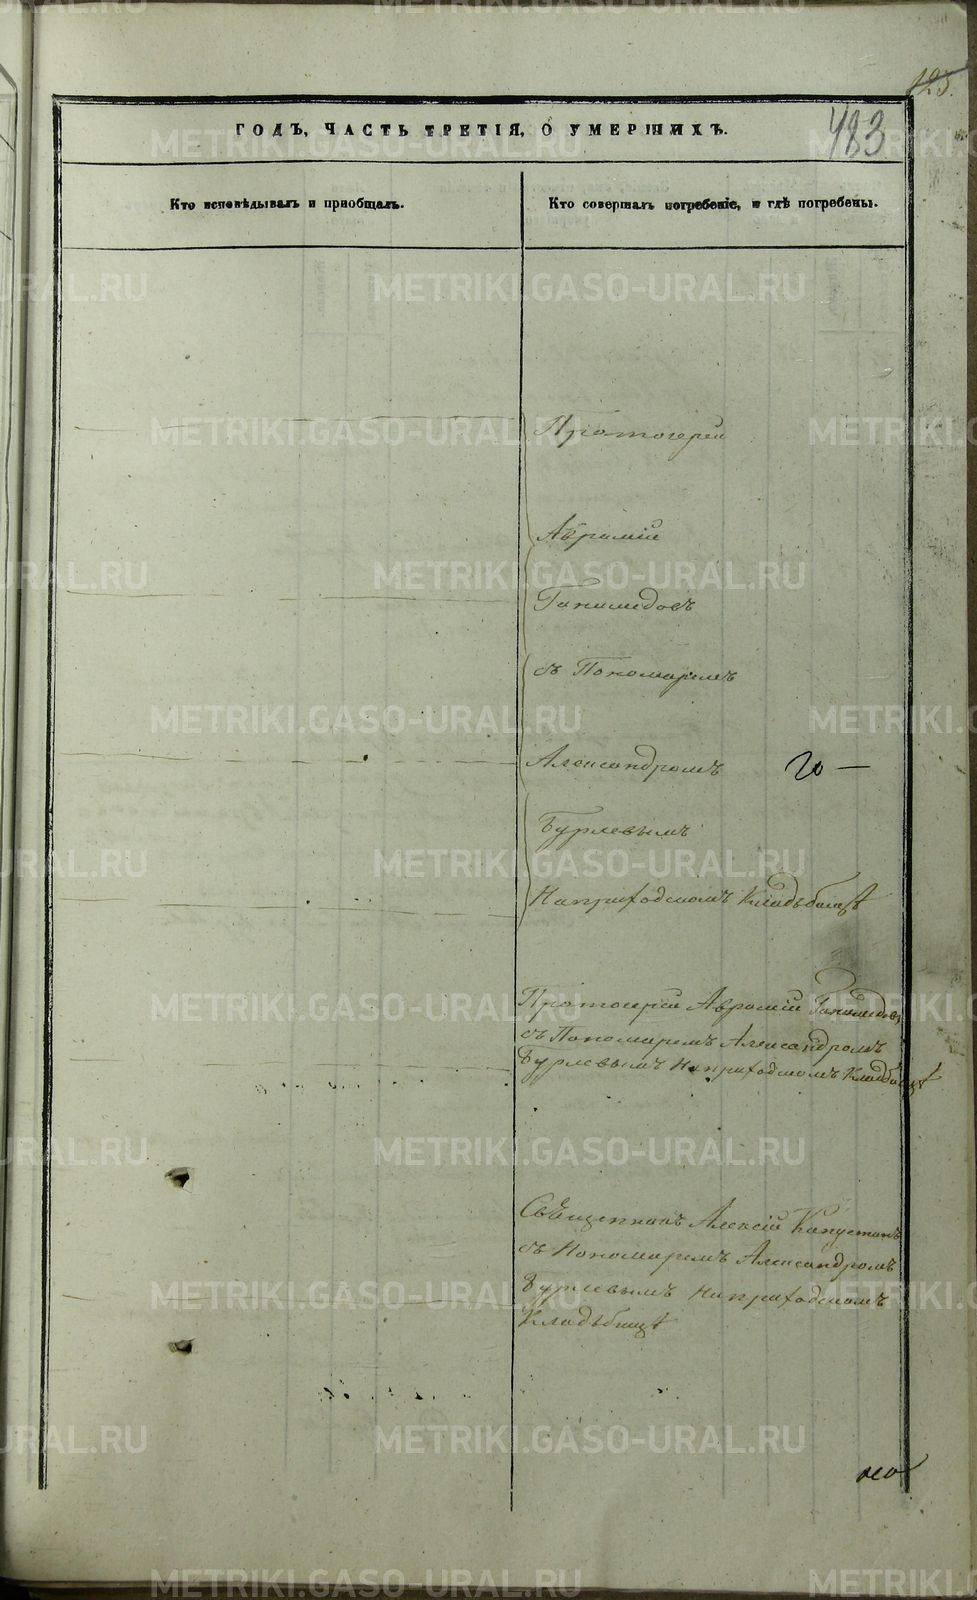 125.
ГОДЪ, ЧАСТЬ ТРЕТІЯ, О УМЕРШИХЪ.
483
Кто исповѣдывалъ и пріобщалъ.
Кто совершалъ погребеніе, и гдѣ погребены.
Протоіерей
Аврамій
Ганимедовъ
съ Пономаремъ
Александромъ
20 —
Бурлевымъ
На приходскомъ Кладьбищѣ
Протоіерей Аврамій Ганимедовъ
съ Пономаремъ Александромъ
Бурлевымъ На приходскомъ Кладбищѣ
Священникъ Алексій Капустинъ
съ Пономаремъ Александромъ
Бурлевымъ На приходскомъ
Кладьбищѣ
METRIKI.GASO-URAL.RU